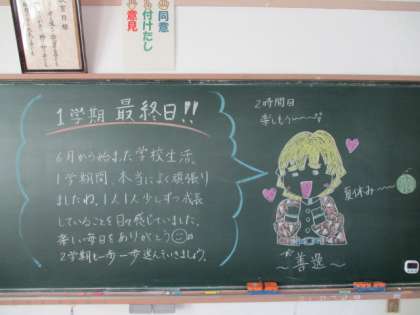 同意
付けたし
意見
1学期 最終日!!
6月から始まった学校生活、
1学期間、本当によく頑張り
ましたね。1人1人少しずつ成長
していることを日々感じていました。
楽しい毎日をありがとう
2学期も一歩一歩進んでいきましょう。
2時間目
夏休み〜
〜善逸〜